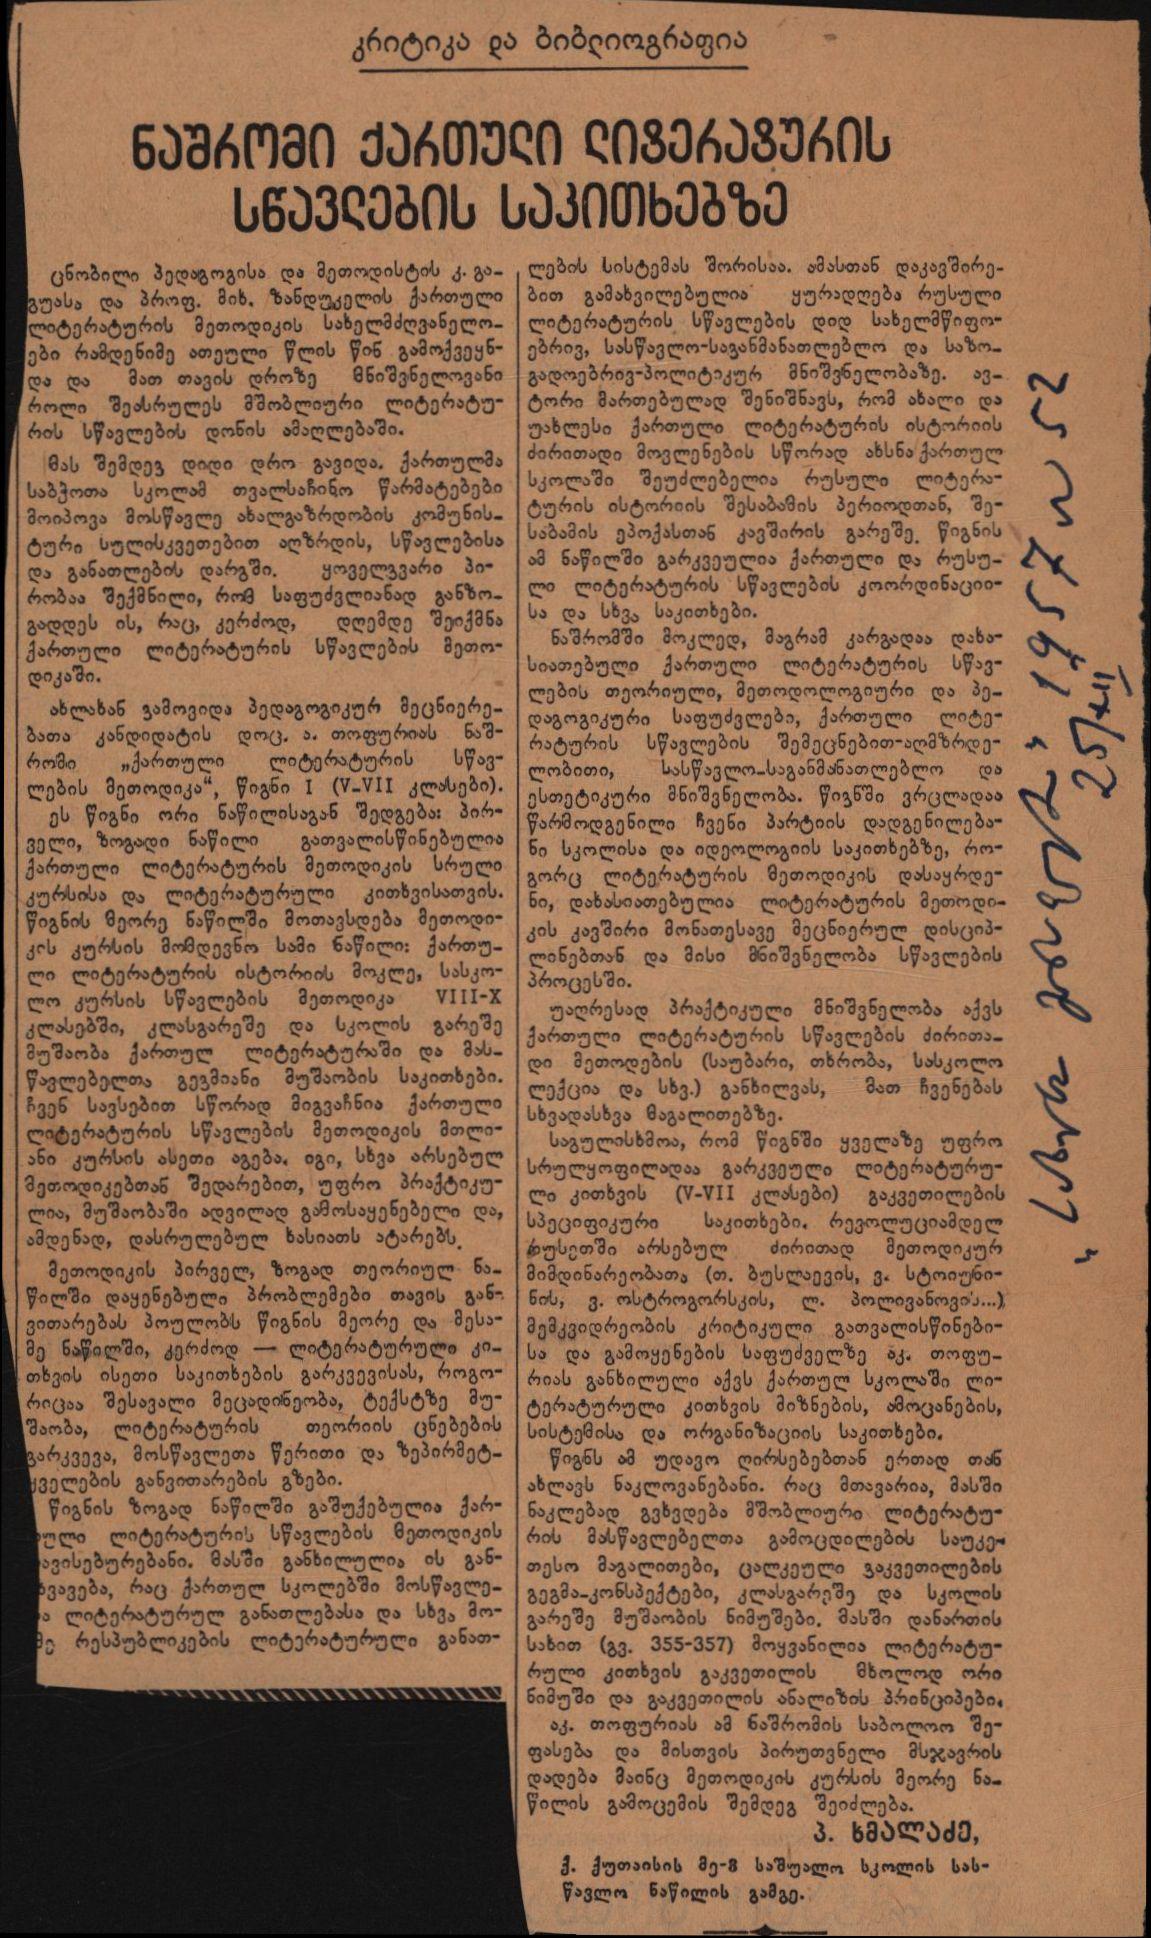 კრიტიკა და ბიბლიოგრაფია
ნაშრომი ქართული ლიტერატურის
სწავლების საკითხებზე
ცნობილი პედაგოგისა და მეთოდისტის კ. გა-
გუასა და პროფ. მიხ. ზანდუკელის ქართული
ლიტერატურის მეთოდიკის სახელმძღვანელო-
ები რამდენიმე ათეული წლის წინ გამოქვეყნ-
და და მათ თავის დროზე მნიშვნელოვანი
როლი შეასრულეს მშობლიური ლიტერატუ-
რის სწავლების დონის ამაღლებაში.
მას შემდეგ დიდი დრო გავიდა. ქართულმა
საბჭოთა სკოლამ თვალსაჩინო წარმატებები
მოიპოვა მოსწავლე ახალგაზრდობის კომუნის-
ტური სულისკვეთებით აღზრდის, სწავლებისა
და განათლების დარგში. ყოველგვარი პი-
რობაა შექმნილი, რომ საფუძვლიანად განზო-
გადდეს ის, რაც, კერძოდ, დღემდე შეიქმნა
ქართული ლიტერატურის სწავლების მეთო-
დიკაში.
ახლახან გამოვიდა პედაგოგიკურ მეცნიერე-
ბათა კანდიდატის დოც. ა. თოფურიას ნაშ-
რომი „ქართული ლიტერატურის სწავ-
ლების მეთოდიკა“, წიგნი I (V-VII კლასები).
ეს წიგნი ორი ნაწილისაგან შედგება: პირ-
ველი, ზოგადი ნაწილი გათვალისწინებულია
ქართული ლიტერატურის მეთოდიკის სრული
კურსისა და ლიტერატურული კითხვისათვის.
წიგნის მეორე ნაწილში მოთავსდება მეთოდი-
კის კურსის მომდევნო სამი ნაწილი: ქართუ-
ლი ლიტერატურის ისტორიის მოკლე, სასკო-
ლო კურსის სწავლების მეთოდიკა VIII-X
კლასებში, კლასგარეშე და სკოლის გარეშე
მუშაობა ქართულ ლიტერატურაში და მას-
წავლებელთა გეგმიანი მუშაობის საკითხები.
ჩვენ სავსებით სწორად მიგვაჩნია ქართული
ლიტერატურის სწავლების მეთოდიკის მთლი-
ანი კურსის ასეთი აგება. იგი, სხვა არსებულ
მეთოდიკებთან შედარებით, უფრო პრაქტიკუ-
ლია, მუშაობაში ადვილად გამოსაყენებელი და,
ამდენად, დასრულებულ ხასიათს ატარებს.
მეთოდიკის პირველ, ზოგად თეორიულ ნა-
წილში დაყენებული პრობლემები თავის გან-
ვითარებას პოულობს წიგნის მეორე და მესა-
მე ნაწილში, კერძოდ — ლიტერატურული კი-
თხვის ისეთი საკითხების გარკვევისას, როგო-
რიცაა შესავალი მეცადინეობა, ტექსტზე მუ-
შაობა, ლიტერატურის თეორიის ცნებების
გარკვევა, მოსწავლეთა წერითი და ზეპირმეტ-
ყველების განვითარების გზები.
წიგნის ზოგად ნაწილში გაშუქებულია ქარ-
თული ლიტერატურის სწავლების მეთოდიკის
თავისებურებანი. მასში განხილულია ის გან-
სხვავება, რაც ქართულ სკოლებში მოსწავლე-
თა ლიტერატურულ განათლებასა და სხვა მო-
ძმე რესპუბლიკების ლიტერატურული განათ-
ლების სისტემას შორისაა. ამასთან დაკავშირე-
ბით გამახვილებულია ყურადღება რუსული
ლიტერატურის სწავლების დიდ სახელმწიფო-
ებრივ, სასწავლო-საგანმანათლებლო და საზო-
გადოებრივ-პოლიტიკურ მნიშვნელობაზე. ავ-
ტორი მართებულად შენიშნავს, რომ ახალი და
უახლესი ქართული ლიტერატურის ისტორიის
ძირითადი მოვლენების სწორად ახსნა ქართულ
სკოლაში შეუძლებელია რუსული ლიტერა-
ტურის ისტორიის შესაბამის პერიოდთან, შე-
საბამის ეპოქასთან კავშირის გარეშე. წიგნის
ამ ნაწილში გარკვეულია ქართული და რუსუ-
ლი ლიტერატურის სწავლების კოორდინაციი-
სა და სხვა საკითხები.
ნაშრომში მოკლედ, მაგრამ კარგადაა დახა-
სიათებული ქართული ლიტერატურის სწავ-
ლების თეორიული, მეთოდოლოგიური და პე-
დაგოგიკური საფუძვლები, ქართული ლიტე-
რატურის სწავლების შემეცნებით-აღმზრდე-
ლობითი, სასწავლო-საგანმანათლებლო და
ესთეტიკური მნიშვნელობა. წიგნში ვრცლადაა
წარმოდგენილი ჩვენი პარტიის დადგენილება-
ნი სკოლისა და იდეოლოგიის საკითხებზე, რო-
გორც ლიტერატურის მეთოდიკის დასაყრდე-
ნი, დახასიათებულია ლიტერატურის მეთოდი-
კის კავშირი მონათესავე მეცნიერულ დისციპ-
ლინებთან და მისი მნიშვნელობა სწავლების
პროცესში.
უაღრესად პრაქტიკული მნიშვნელობა აქვს
ქართული ლიტერატურის სწავლების ძირითა-
დი მეთოდების (საუბარი, თხრობა, სასკოლო
ლექცია და სხვ.) განხილვას, მათ ჩვენებას
სხვადასხვა მაგალითებზე.
საგულისხმოა, რომ წიგნში ყველაზე უფრო
სრულყოფილადაა გარკვეული ლიტერატურუ-
ლი კითხვის (V-VII კლასები) გაკვეთილების
სპეციფიკური საკითხები. რევოლუციამდელ
რუსეთში არსებულ ძირითად მეთოდიკურ
მიმდინარეობათა (თ. ბუსლაევის, ვ. სტოიუნი-
ნის, ვ. ოსტროგორსკის, ლ. პოლივანოვის...)
მემკვიდრეობის კრიტიკული გათვალისწინები-
სა და გამოყენების საფუძველზე აკ. თოფუ-
რიას განხილული აქვს ქართულ სკოლაში ლი-
ტერატურული კითხვის მიზნების, ამოცანების,
სისტემისა და ორგანიზაციის საკითხები.
წიგნს ამ უდავო ღირსებებთან ერთად თან
ახლავს ნაკლოვანებანი. რაც მთავარია, მასში
ნაკლებად გვხვდება მშობლიური ლიტერატუ-
რის მასწავლებელთა გამოცდილების საუკე-
თესო მაგალითები, ცალკეული გაკვეთილების
გეგმა-კონსპექტები, კლასგარეშე და სკოლის
გარეშე მუშაობის ნიმუშები. მასში დანართის
სახით (გვ. 355-357) მოყვანილია ლიტერატუ-
რული კითხვის გაკვეთილის მხოლოდ ორი
ნიმუში და გაკვეთილის ანალიზის პრინციპები.
აკ. თოფურიას ამ ნაშრომის საბოლოო შე-
ფასება და მისთვის პირუთვნელი მსჯავრის
დადება მაინც მეთოდიკის კურსის მეორე ნა-
წილის გამოცემის შემდეგ შეიძლება.
პ. ხმალაძე,
ქ. ქუთაისის მე-8 საშუალო სკოლის სას-
წავლო ნაწილის გამგე.
1957 წ 52
25/XII